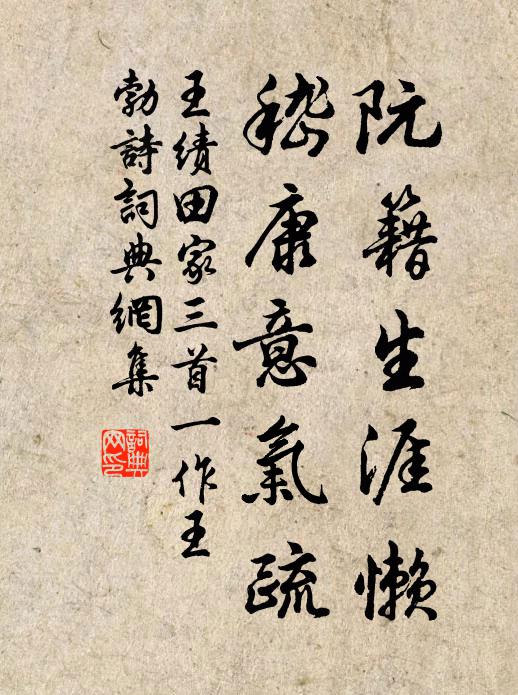 阮籍生涯懒
嵇康意氣疏
王绩田家三首一作王
勃詩詞典網集
詞典網印